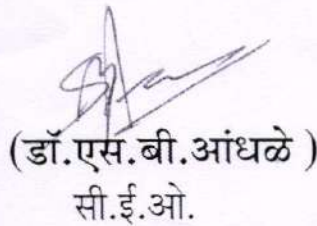 (डॉ.एस.बी.आंधळे )
सी.ई.ओ.